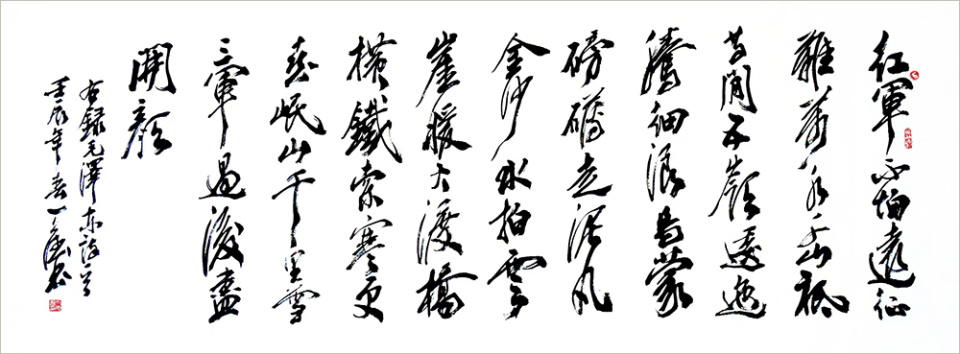 紅軍不怕遠征
難萬水千山祗
等閒五嶺逶迤
騰細浪烏蒙
磅礴走泥丸
金沙水拍雲
崖暖大渡橋
橫鐵索寒更
喜岷山千里雪
三軍過後盡
開顏
右録毛澤东詩一首
壬辰年春